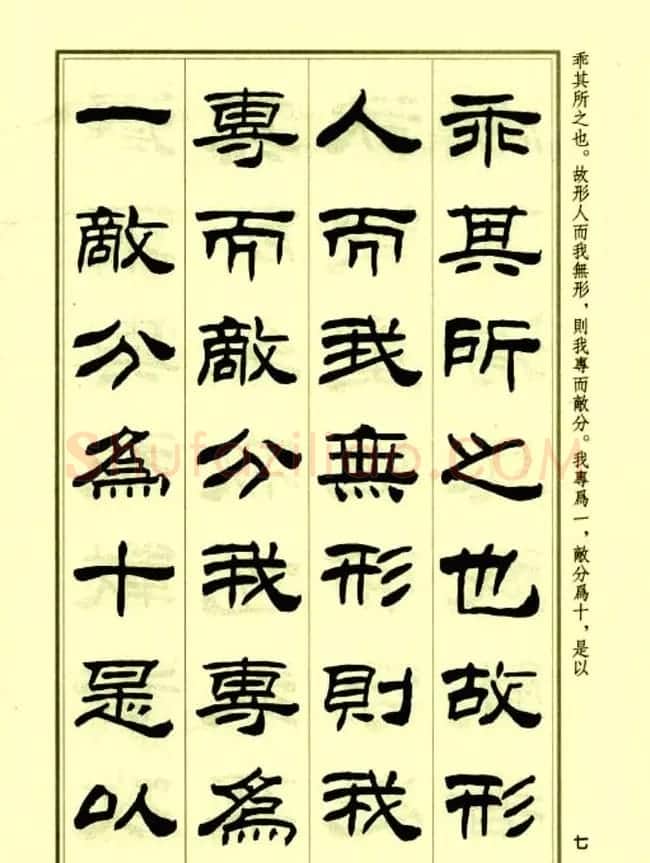 乖其所之也。故形人而我無形，則我專而敵分。我專爲一，敵分爲十，是以
乖其所之也故形
人而我無形則我
專而敵分我專爲
一敵分爲十是以
七
Shufaziliao.COM